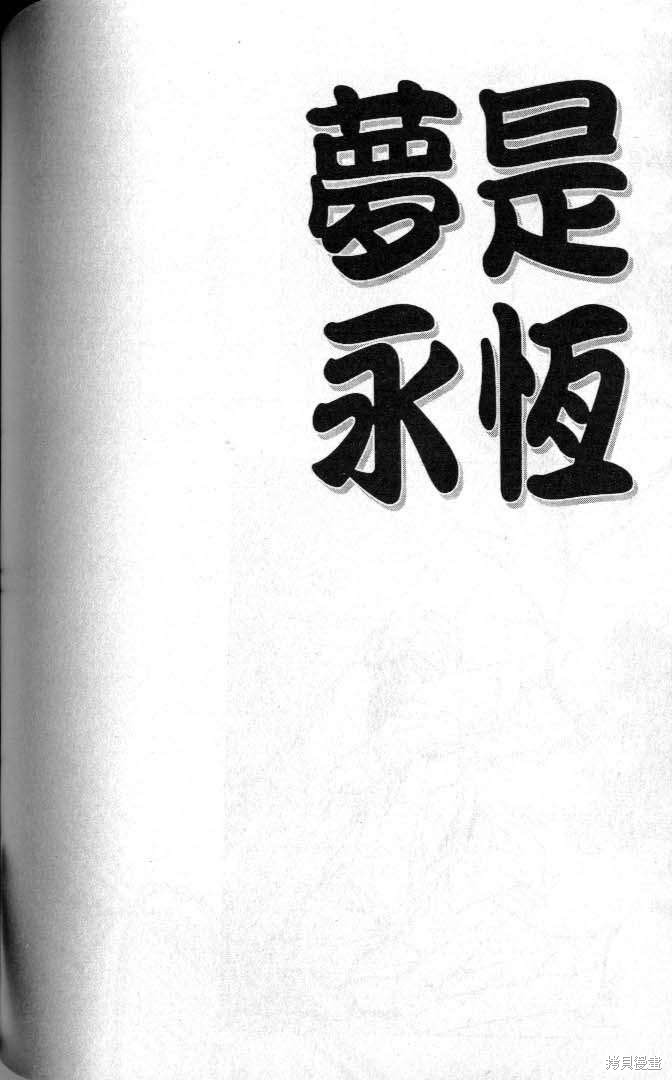 夢是
永恆
拷貝漫畫